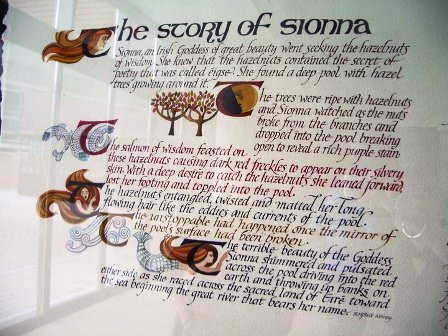 The Story of Sionna
Sionna, an Irish Goddess of great beauty went seeking the hazelnuts
of wisdom. She knew that the hazelnuts contained the secret of
poetry that was called éigse. She found a deep pool with hazel
trees growing around it.
The trees were ripe with hazelnuts
and Sionna watched as the nuts
broke from the branches and
dropped into the pool breaking
open to reveal a rich purple stain.
The salmon of wisdom feasted on
these hazelnuts causing dark red freckles to appear on their silvery
skin. With a deep desire to catch the hazelnuts she leaned forward,
lost her footing and toppled into the pool.
The hazelnuts entangled, twisted and matted her long
flowing hair like the eddies and currents of the pool.
The unstoppable had happened once the mirror of
the pool's surface had been broken.
The terrible beauty of the Goddess
Sionna shimmered and pulsated
across the pool driving into the red
earth and throwing up banks on
either side, as she raced across the sacred land of Éire toward
the sea beginning the great river that bears her name.